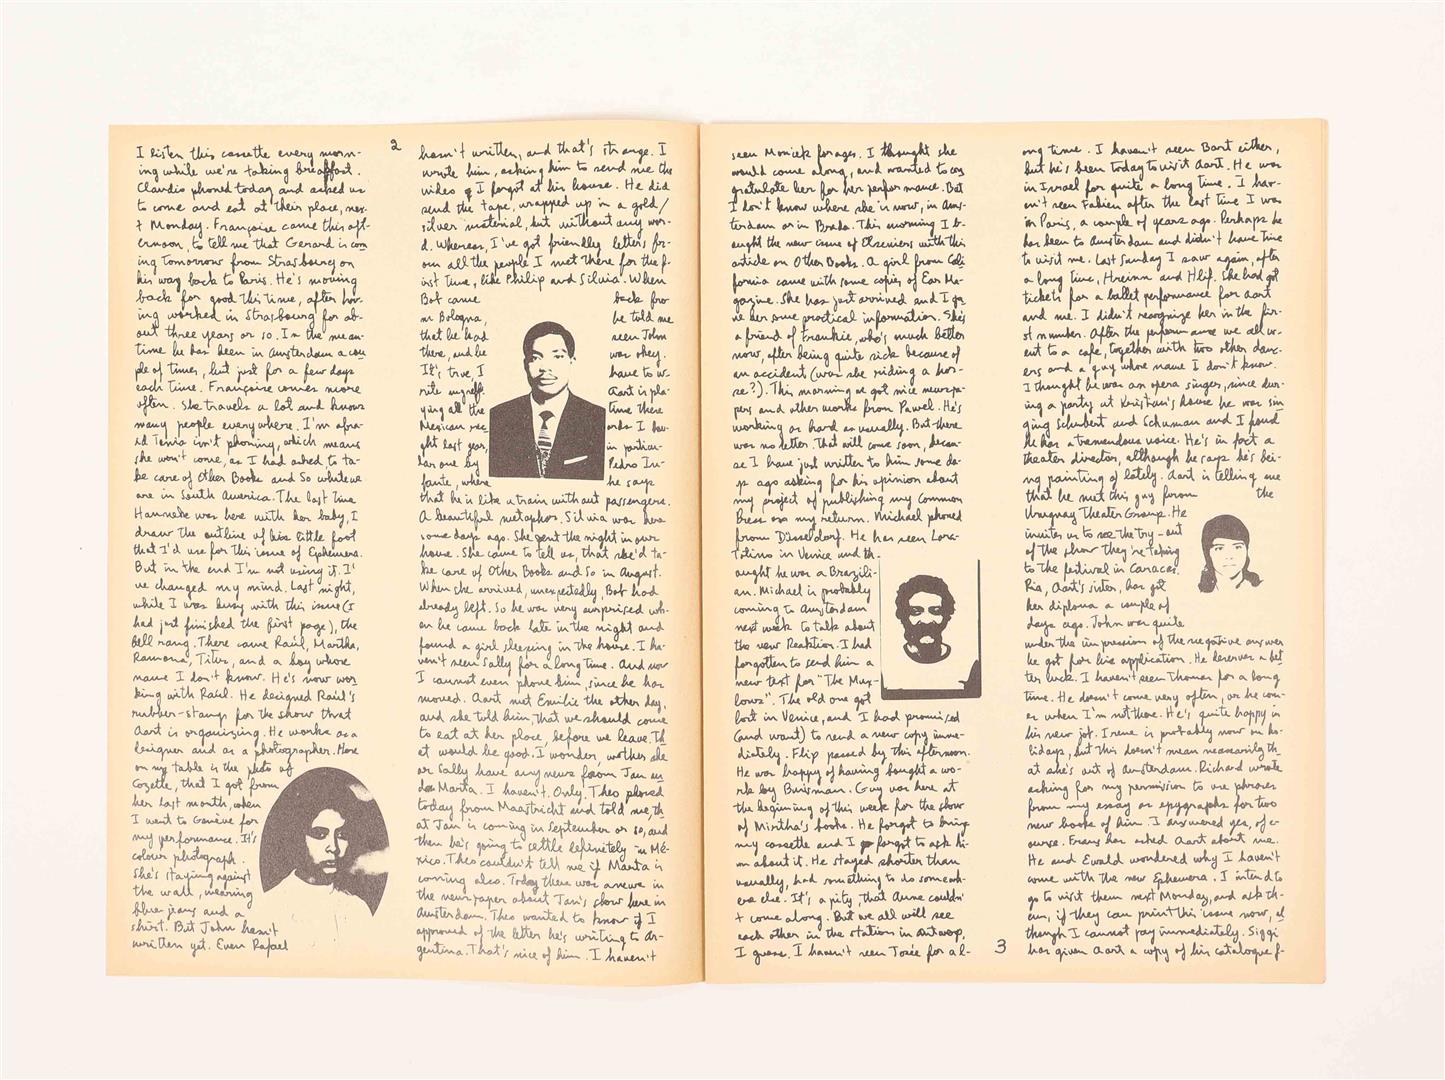 I listen this cassette every morn-
ing while we're taking breakfast.
Claudio phoned today and asked us
to come and eat at their place, nex-
t Monday. Françoise came this aft-
ernoon, to tell me that Gerard is com
ing tomorrow from Strasbourg on
his way back to Paris. He's moving
back for good this time, after hav-
ing worked in Strasbourg for ab-
out three years or so. In the mean-
time he has been in Amsterdam a cou
ple of times, but just for a few days
each time. Françoise comes more
often. She travels a lot and knows
many people everywhere. I'm afra-
id Tania isn't phoning, which means
she won't come, as I had asked to ta-
ke care of Other Books and So while we
are in South America. The last time
Hanneke was here with her baby, I
draw the outline of his little foot
that I'd use for this issue of Ephemera.
But in the end I'm not using it. I'
ve changed my mind. Last night,
while I was busy with this issue (I
had just finished the first page), the
bell rang. There came Raúl, Martha,
Ramona, Titus, and a boy whose
name I don't know. He's now wor
king with Raúl. He designed Raúl's
rubber-stamp for the show that
Aart is organizing. He works as a
designer and as a photographer. Here
on my table is the photo of
Cozette, that I got from
her last month, when
I went to Genève for
my performance. It's
colour photograph.
She's staying against
the wall, wearing
blue jeans and a
shirt. But John hasn't
written yet. Even Rafael
2
hasn't written, and that's strange. I
wrote him, asking him to send me the
video I forgot at his house. He did
send the tape, wrapped up in a gold/
silver material, but without any wor-
d. Whereas, I've got friendly letters fr-
om all the people I met there for the f-
irst time, like Philip and Silvia. When
Bot came back fro
m Bologna, he told me
that he had seen John
there, and he was okey.
It's true, I have to w-
rite myself. Aart is pla-
ying all the time these
Mexican rec ords I bou-
ght last year, in particu-
lar one by Pedro In-
fante, where he says
that he is like a train without passengers.
A beautiful metaphor. Silvia was here
some days ago. She spent the night in our
house. She came to tell us, that she'd ta-
ke care of Other Books and So in August.
When she arrived, unexpectedly, Bot had
already left. So he was very surprised wh-
en he came back late in the night and
found a girl sleeping in the house. I ha-
ven't seen Sally for a long time. And now
I cannot even phone him, since he has
moved. Aart met Emilie the other day,
and she told him, that we should come
to eat at her place, before we leave. Th
at would be good. I wonder, wether she
or Sally have any news from Jan an
d Marta. I haven't. Only, Theo phoned
today from Maastricht and told me, th
at Jan is coming in September or so, and
then he's going to settle definitely in Mé-
xico. Theo couldn't tell me if Marta is
coming also. Today there was a review in
the newspaper about Jan's show here in
Amsterdam. Theo wanted to know if I
approved of the letter he's writing to Ar-
gentina. That's nice of him. I haven't
seen Moniek for ages. I thought she
would come along, and wanted to con
gratulate her for her performance. But
I don't know where she is now, in Ams-
terdam or in Breda. This morning I b-
ought the new issue of Elseviers with this
article on Other Books. A girl from Cali
fornia came with some copies of Ear Ma-
gazine. She has just arrived and I ga
ve her some practical information. She's
a friend of Frankie, who's much better
now, after being quite sick because of
an accident (was she riding a hor-
se?). This morning we got nice newspa-
pers and other works from Pawel. He's
working as hard as usually. But there
was no letter. That will come soon, becau-
se I have just written to him some da-
ys ago asking for his opinion about
my project of publishing my Common
Press on my return. Michael phoned
from Düsseldorf. He has seen Lora-
Totino in Venice and th-
ought he was a Brazili-
an. Michael is probably
coming to Amsterdam
next week to talk about
the new Reaktion. I had
forgotten to send him a
new text for "The Mux-
lows". The old one got
lost in Venice, and I had promised
(and want) to send a new copy imme-
diately. Flip passed by this afternoon.
He was happy of having bought a wo-
rk by Buisman. Guy was here at
the beginning of this week for the show
of Mirtha's books. He forgot to bring
my cassette and I forgot to ask hi-
m about it. He stayed shorter than
usually, had something to do somewh-
ere else. It's a pity, that Anne couldn'
t come along. But we all will see
each other in the station in Antwerp,
I guess. I haven't seen Josée for a l-
3
ong time. I haven't seen Bart either,
but he's been today to visit Aart. He was
in Israel for quite a long time. I hav-
en't seen Fabien after the last time I was
in Paris, a couple of years ago. Perhaps he
has been to Amsterdam and didn't have time
to visit me. Last Sunday I saw again, after
a long time, Hreinn and Hlíf. She had got
tickets for a ballet performance for Aart
and me. I didn't recognize her in the fir-
st number. After the performance we all w-
ent to a cafe, together with two other danc-
ers and a guy whose name I don't know.
I thought he was an opera singer, since dur-
ing a party at Kristján's house he was sin
ging Schubert and Schuman and I found
he has a tremendous voice. He's in fact a
theater director, although he says he's do-
ing painting of lately. Aart is telling me
that he met this guy from the
Uruguay Theater Group. He
invites us to see the try-out
of the show they're taking
to the festival in Caracas.
Ria, Aart's sister, has got
her diploma a couple of
days ago. John was quite
under the impression of the negative answer
he got for his application. He deserves a bet
ter luck. I haven't seen Thomas for a long
time. He doesn't come very often, or he com-
es when I'm not there. He's quite happy in
his new job. Irene is probably now on ho-
lidays, but this doesn't mean necessarily th-
at she's out of Amsterdam. Richard wrote
asking for my permission to use phrases
from my essay as epygraphs for two
new books of him. I answered yes, of c-
ourse. Frans has asked Aart about me.
He and Ewald wondered why I haven't
come with the new Ephemera. I intend to
go to visit them next Monday, and ask th-
em, if they can print this issue now, al
though I cannot pay immediately. Siggi
has given Aart a copy of his catalogue f-